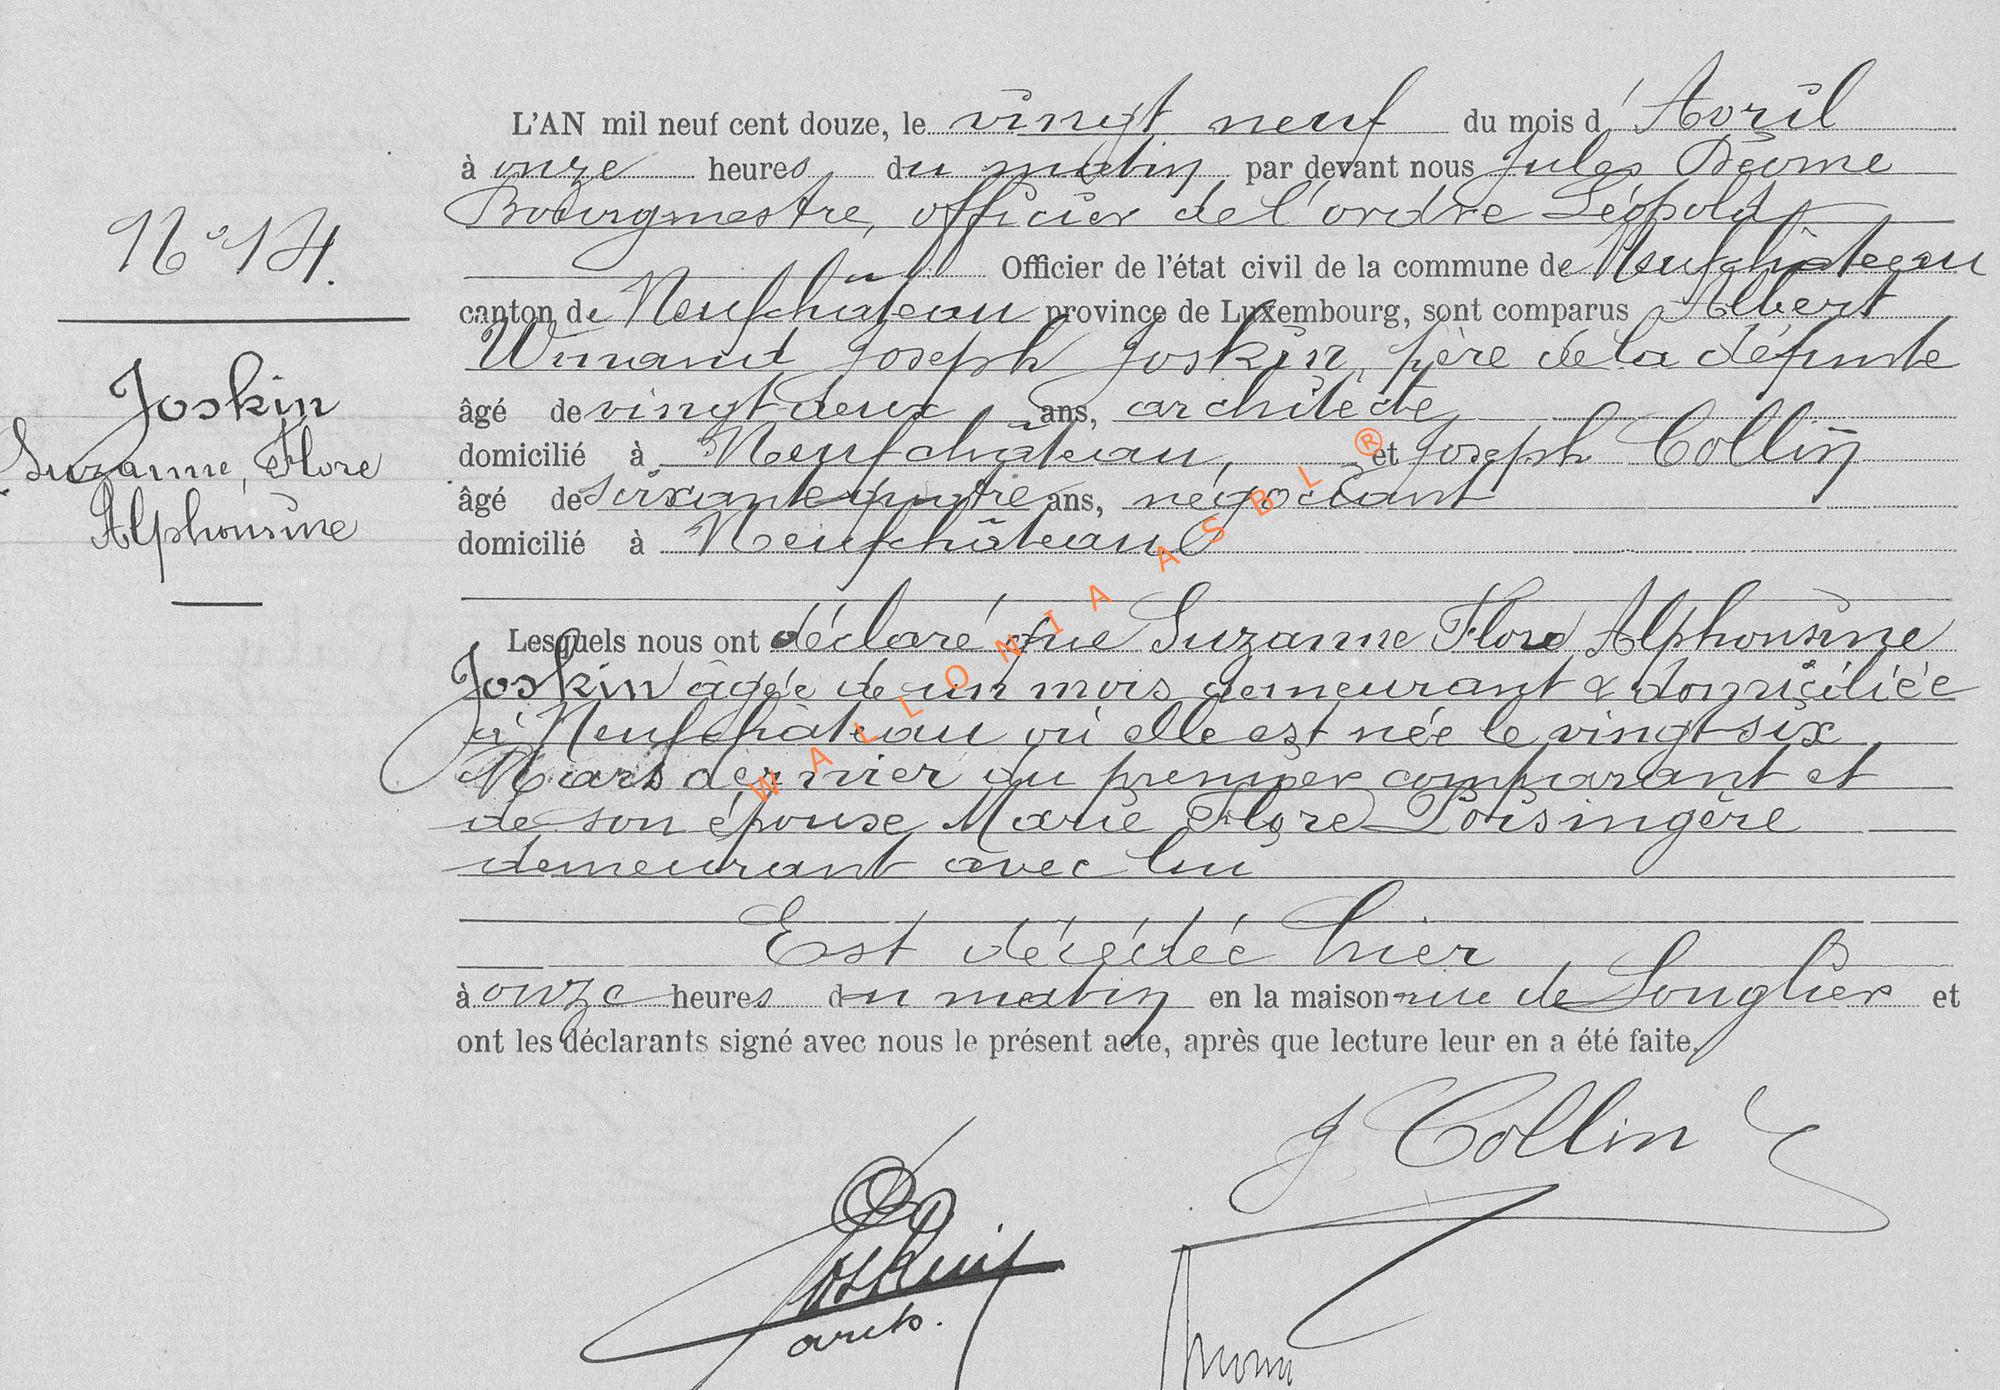 L'AN mil neuf cent douze, le vingt neuf du mois d'Avril
à onze heures du matin par devant nous Jules
Bourgmestre, officier de l'ordre Léopold
N° 14.
Officier de l'état civil de la commune de Neufchâteau
canton de Neufchâteau province de Luxembourg, sont comparus Albert
Winand Joseph Joskin, père de la défunte
Joskin
âgé de vingt deux ans, architecte
Suzanne, Flore
domicilié à Neufchâteau, et Joseph Collin
âgé de soixante quatre ans, négociant
Alphonsine
domicilié à Neufchâteau
Lesquels nous ont déclaré que Suzanne Flore Alphonsine
Joskin âgée de un mois demeurant & domiciliée
à Neufchâteau où elle est née le vingt-six
Mars dernier du premier comparant et
de son épouse Marie Flore Poisingère
demeurant avec lui
Est décédée hier
à onze heures du matin en la maison rue de Longlier et
ont les déclarants signé avec nous le présent acte, après que lecture leur en a été faite.
J Collin
Joskin
arch.
WALLONIA ASBL ®